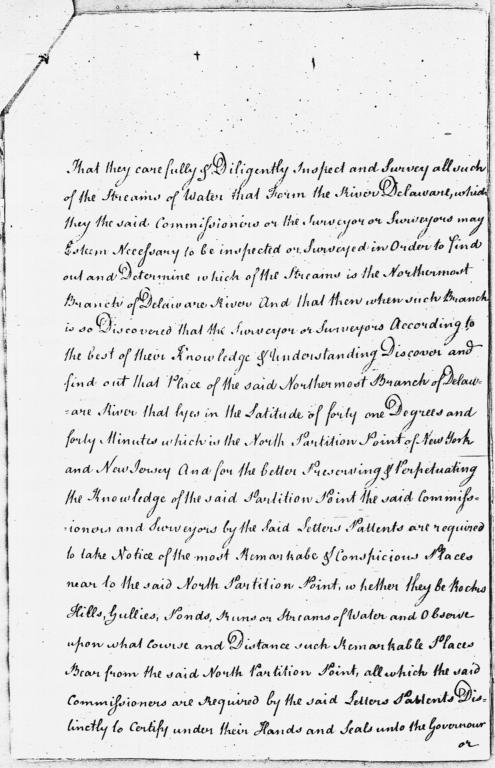 That they carefully & Diligently Inspect and Survey all such
of the Streams of Water that Form the River Delaware, which
they the said Commissioners or the Surveyor or Surveyors may
Esteem Necessary to be inspected or Surveyed in Order to find
out and Determine which of the Streams is the Northermost
Branch of Delaware River And that then when such Branch
is so Discovered that the Surveyor or Surveyors According to
the best of their Knowledge & Understanding Discover and
find out that Place of the said Northermost Branch of Delaw-
=are River that lyes in the Latitude of forty one Degrees and
forty Minutes which is the North Partition Point of New York
and New Jersey And for the better Preserving & Perpetuating
the Knowledge of the said Partition Point the said Commiss-
ioners and Surveyors by the Said Letters Pattents are required
to take Notice of the most Remarkabe & Conspicious Places
near to the said North Partition Point, whether they be Rocks
Hills, Gullies, Ponds, Runs or Streams of Water and Observe
upon what Course and Distance such Remarkable Places
Bear from the said North Partition Point, all which the said
Commissioners are Required by the said Letters Pattents Dis-
tinctly to Certify under their Hands and Seals unto the Governour
or